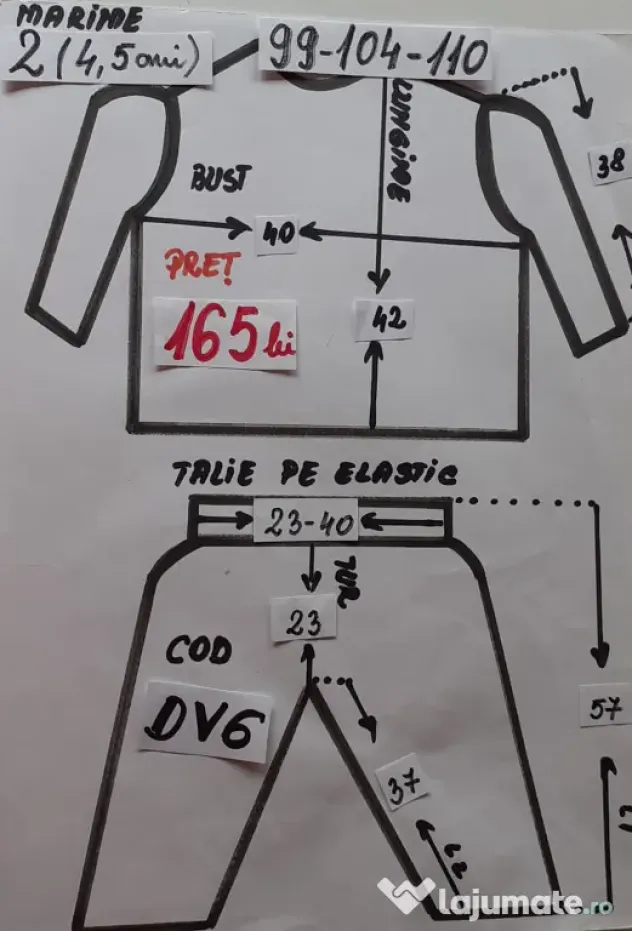 MARIME
2 (4,5 ani)
99-104-110
LUNGIME
38
BUST
40
PREȚ
165 lei
42
TALIE PE ELASTIC
23-40
TUR
23
COD
DV6
57
37
L2
L1
lajumate.ro